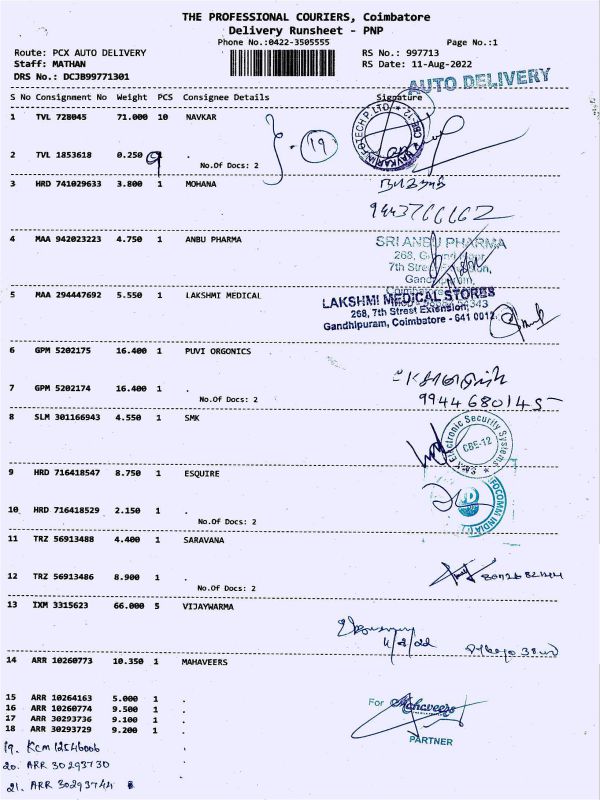 THE PROFESSIONAL COURIERS, Coimbatore
Delivery Runsheet - PNP
Phone No.:0422-3505555 Page No.:1
Route: PCX AUTO DELIVERY RS No.: 997713
Staff: MATHAN RS Date: 11-Aug-2022
DRS No.: DCJB99771301
AUTO DELIVERY
S No Consignment No Weight PCS Consignee Details Signature
1 TVL 728045 71.000 10 NAVKAR
NAVKAR INFOTECH P. LTD * CBE-12 *
19
2 TVL 1853618 0.250 9 .
No.Of Docs: 2
3 HRD 741029633 3.800 1 MOHANA
9443766662
4 MAA 942023223 4.750 1 ANBU PHARMA
SRI ANBU PHARMA
268,
7th Street
5 MAA 294447692 5.550 1 LAKSHMI MEDICAL
LAKSHMI MEDICAL STORES
268, 7th Street Extension,
Gandhipuram, Coimbatore - 641 0012.
6 GPM 5202175 16.400 1 PUVI ORGONICS
7 GPM 5202174 16.400 1 .
No.Of Docs: 2
9944680145
8 SLM 301166943 4.550 1 SMK
Electronic Security Systems
CBE-12
9 HRD 716418547 8.750 1 ESQUIRE
10 HRD 716418529 2.150 1 .
No.Of Docs: 2
11 TRZ 56913488 4.400 1 SARAVANA
12 TRZ 56913486 8.900 1 .
No.Of Docs: 2
13 IXM 3315623 66.000 5 VIJAYWARMA
11/8/22
14 ARR 10260773 10.350 1 MAHAVEERS
15 ARR 10264163 5.000 1 .
16 ARR 10260774 9.500 1 .
17 ARR 30293736 9.100 1 .
18 ARR 30293729 9.200 1 .
For Mahaveers
PARTNER
19. KCM 12546006
20. ARR 30293730
21. ARR 30293744